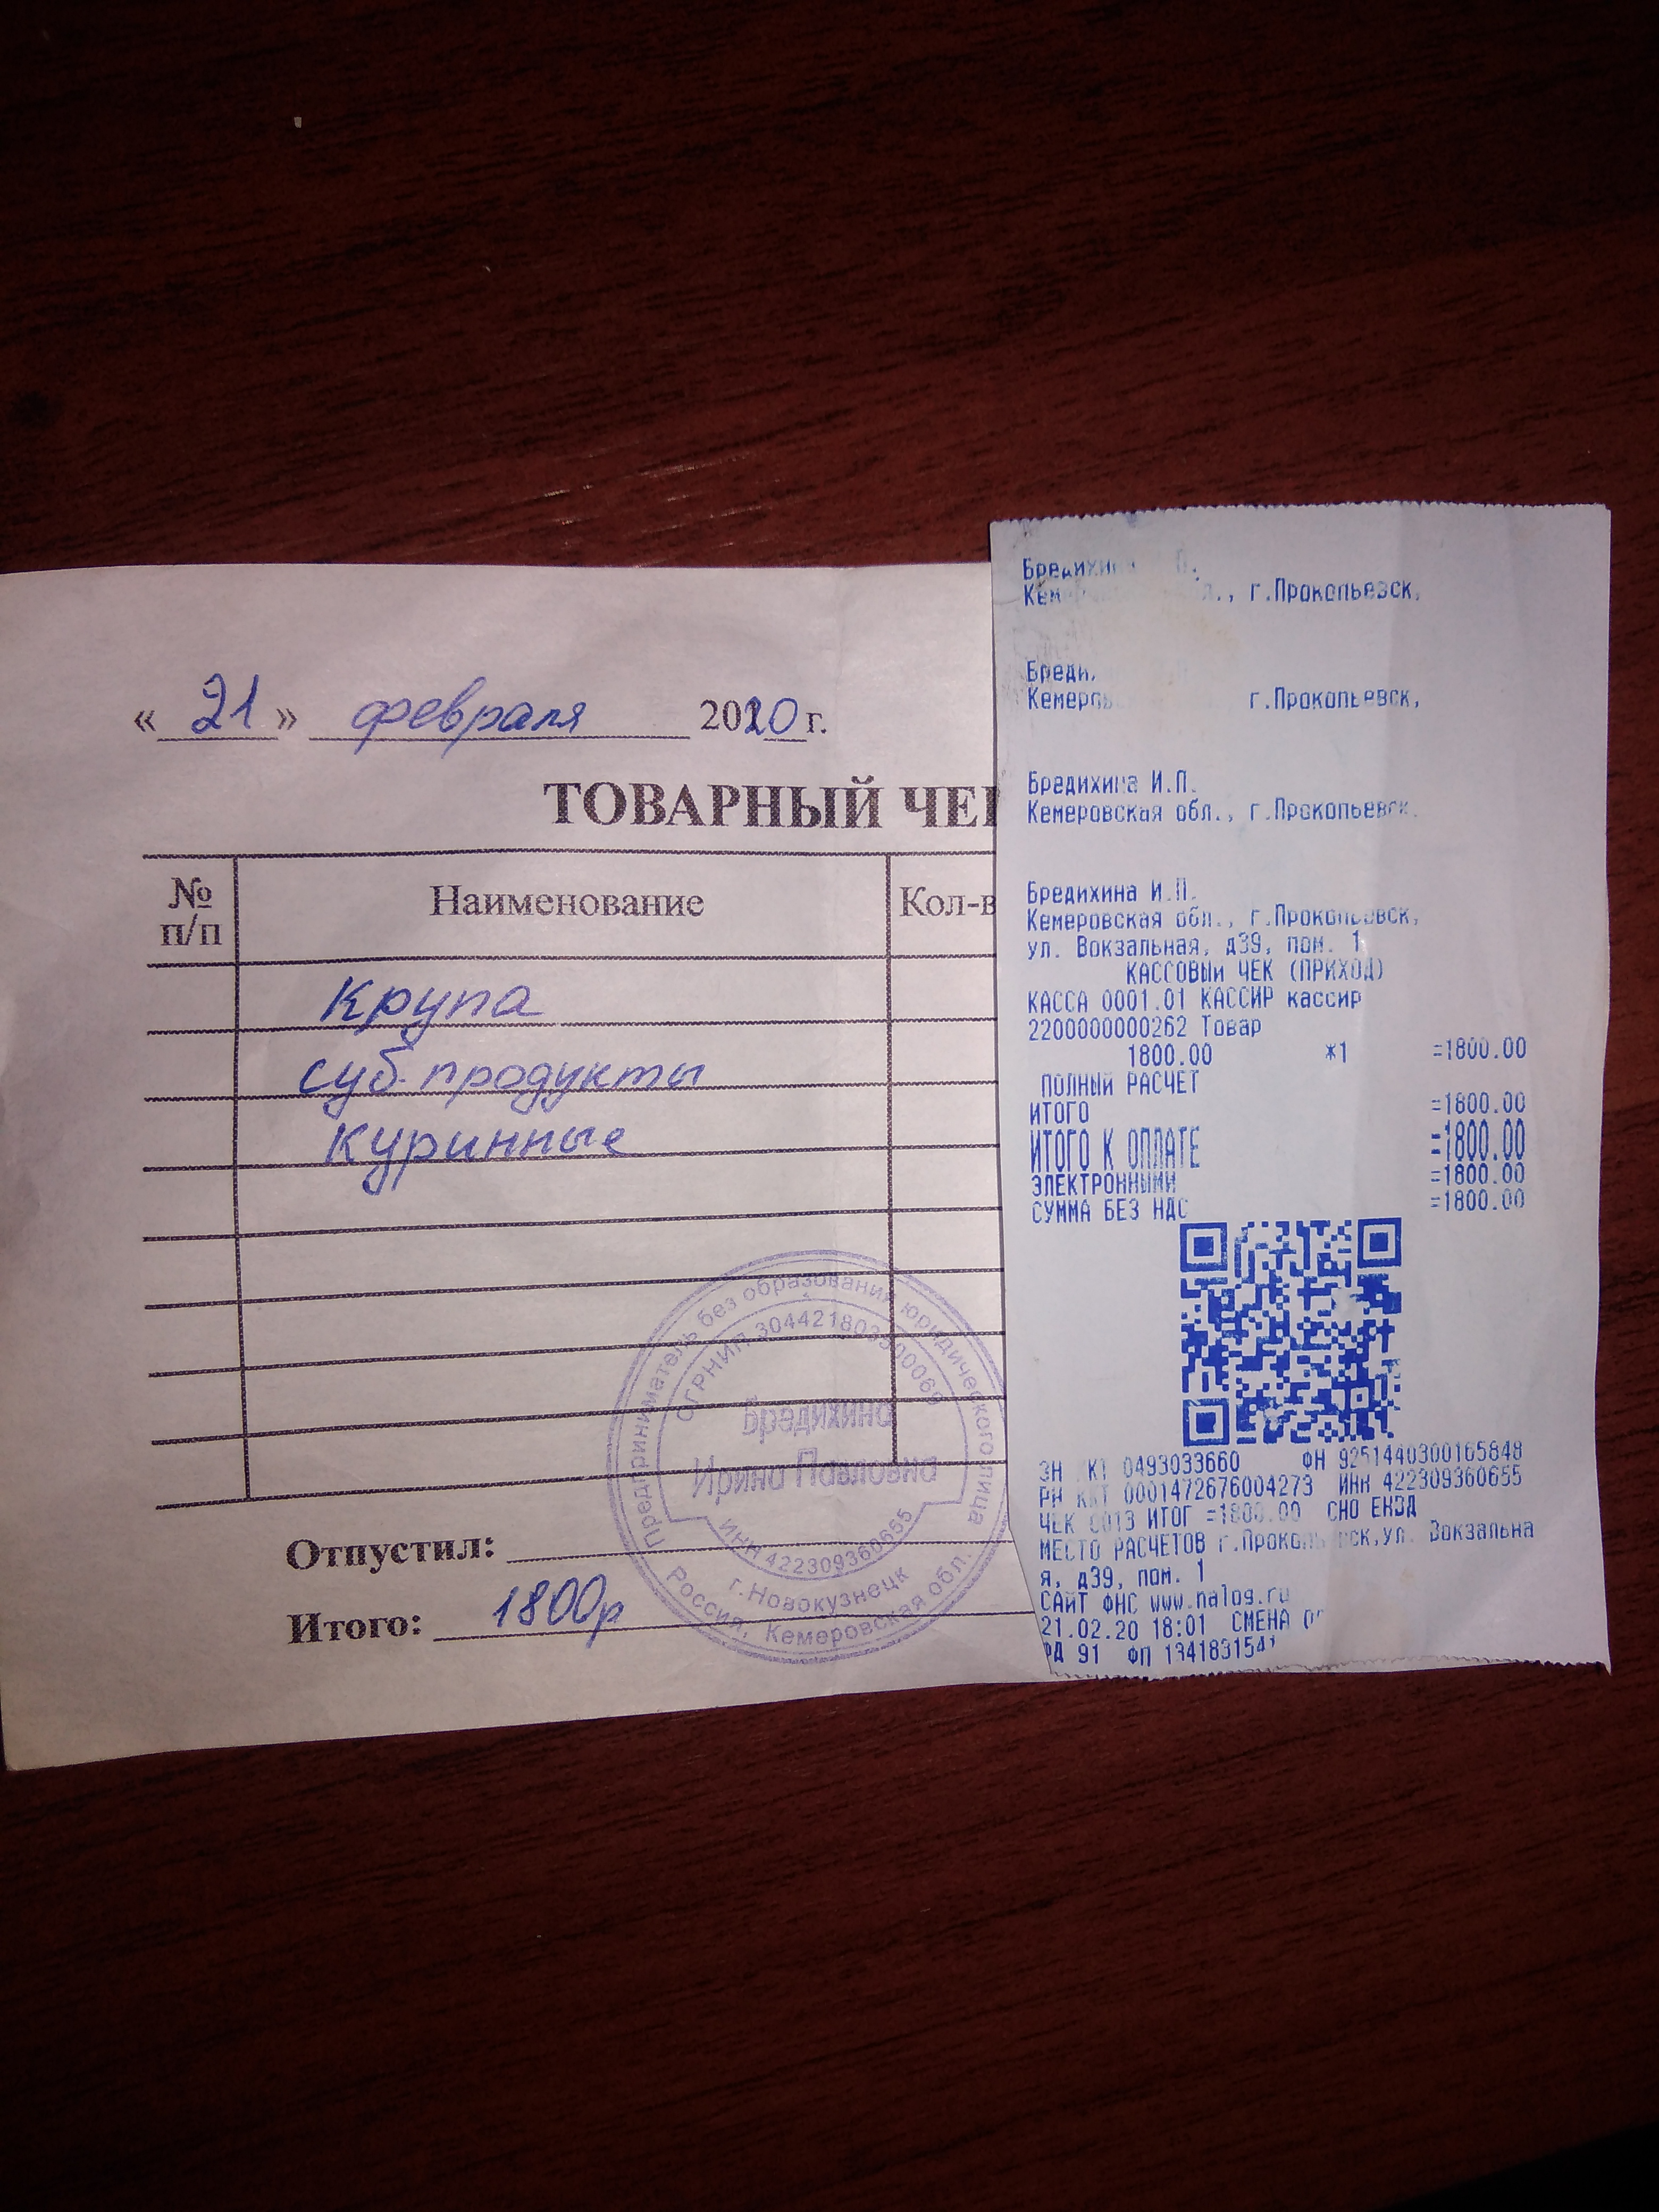 «21» февраля 2020 г.
ТОВАРНЫЙ ЧЕ
№ п/п Наименование Кол-в
Крупа
суб. продукты
куринные
Отпустил:
Итого: 1800р
Предприниматель без образования юридического лица
ОГРНИП
Бредихина
Ирина Павловна
ИНН 422309360655
г.Новокузнецк
Россия, Кемеровская обл.
г.Прокопьевск,
г.Прокопьевск,
Бредихина И.П.
Кемеровская обл., г.Прокопьевск,
Бредихина И.П.
Кемеровская обл., г.Прокопьевск,
ул. Вокзальная, д39, пом. 1
КАССОВЫЙ ЧЕК (ПРИХОД)
КАССА 0001.01 КАССИР кассир
2200000000262 Товар
1800.00 *1 =1800.00
ПОЛНЫЙ РАСЧЕТ
ИТОГО =1800.00
ИТОГО К ОПЛАТЕ =1800.00
ЭЛЕКТРОННЫМИ =1800.00
СУММА БЕЗ НДС =1800.00
ЗН ККТ 0493033660 ФН 9251440300165848
РН ККТ 0001472676004273 ИНН 422309360655
ЧЕК 0013 ИТОГ =1800.00 СНО ЕНВД
МЕСТО РАСЧЕТОВ г.Прокопьевск,ул. Вокзальна
я, д39, пом. 1
САЙТ ФНС www.nalog.ru
21.02.20 18:01 СМЕНА
91 ФП